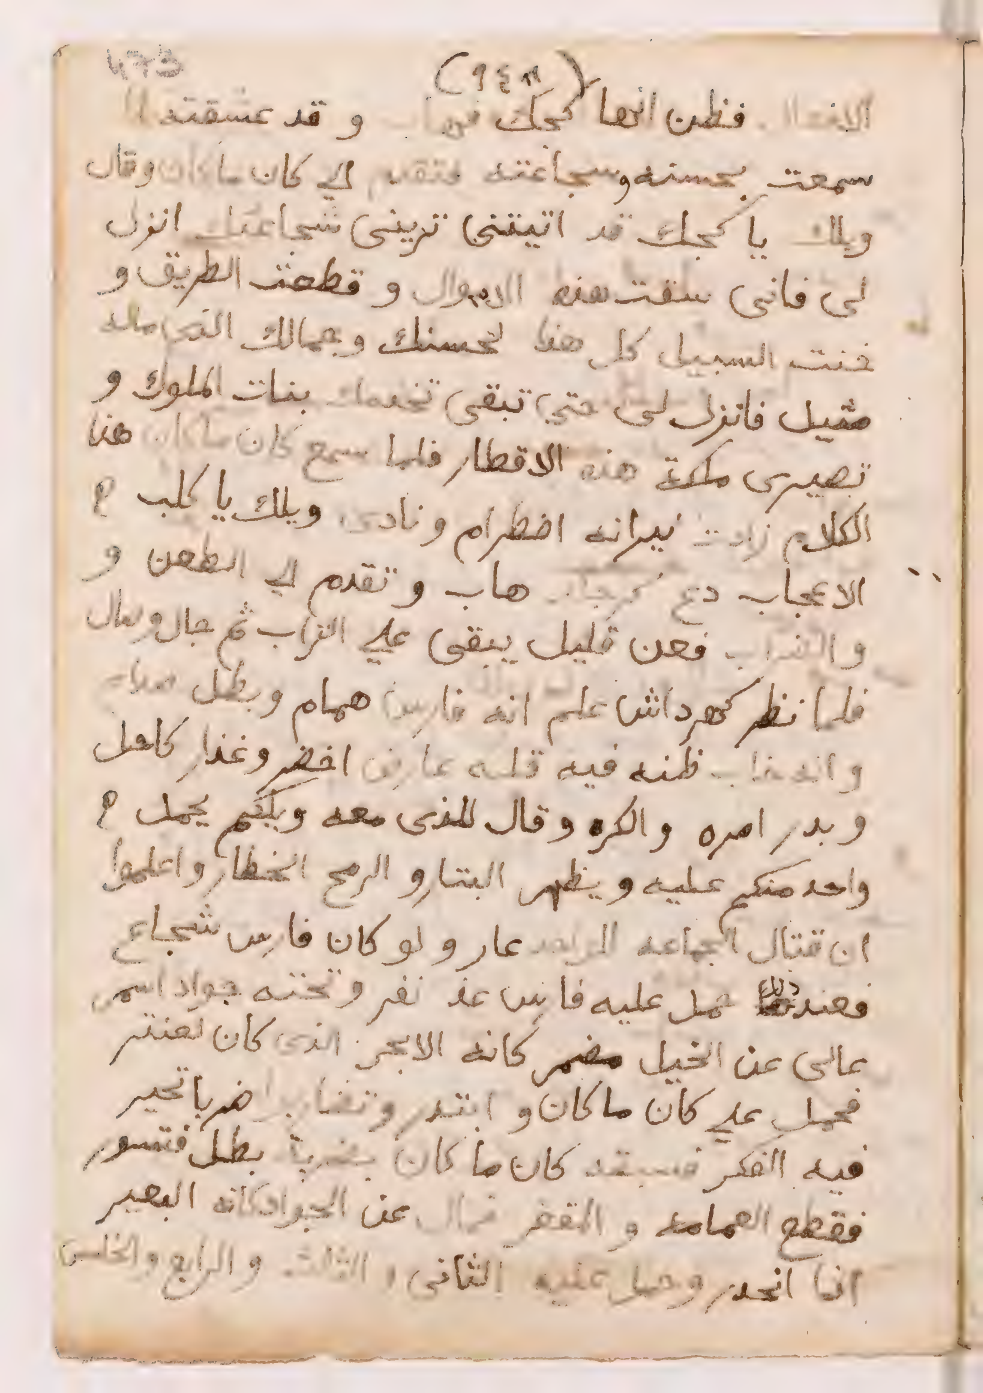 473
(٩٤٣)
فظن انها كجك و قد عشقته
سمعت بحسنه وسجاعته فتقدم الي كان ماكان وقال
ويلك يا كجك قد اتيتني تزيني شجاعتك انزل
لى فانى سقت هذه الاموال و قطعت الطريق و
خنت السبيل كل هذا لحسنك وجمالك الذى ماله
مثيل فانزل لى حتى تبقى تخدمك بنات الملوك و
تصيرى ملكة هذه الاقطار فلما سمع كان ماكان هذا
الكلام زادت نيرانه اضطرام ونادى ويلك يا كلب
الاعجاب دع هاب و تقدم الي الطعن و
و الضراب فعن قليل يبقى علي التراب ثم جال وصال
فلما نظر كهرداش علم انه فارس همام وبطل
وانه خاب ظنه فيه قلبه عارض اخضر وغذار كامل
و بدر امره والكره و قال للذى معه ويلكم يحمل
واحد منكم عليه و يظهر البتار و الرمح الخطار واعلموا
ان قتال الجماعه للواحد عار و لو كان فارس شجاع
فعند ذلك حمل عليه فارس عذ نفر و تحته جواد اسمر
عالى عن الخيل مضمر كانه الابجر الذى كان لعنتر
فحمل علي كان ماكان و ابتدر وتضاربا ضربا تحير
فيه الفكر فسبقه كان ما كان بضربة بطل قسور
فقطع العمامه و المغفر فمال عن الجواد كانه البعير
اذا انحدر وحمل عليه الثانى و الثالث و الرابع والخامس